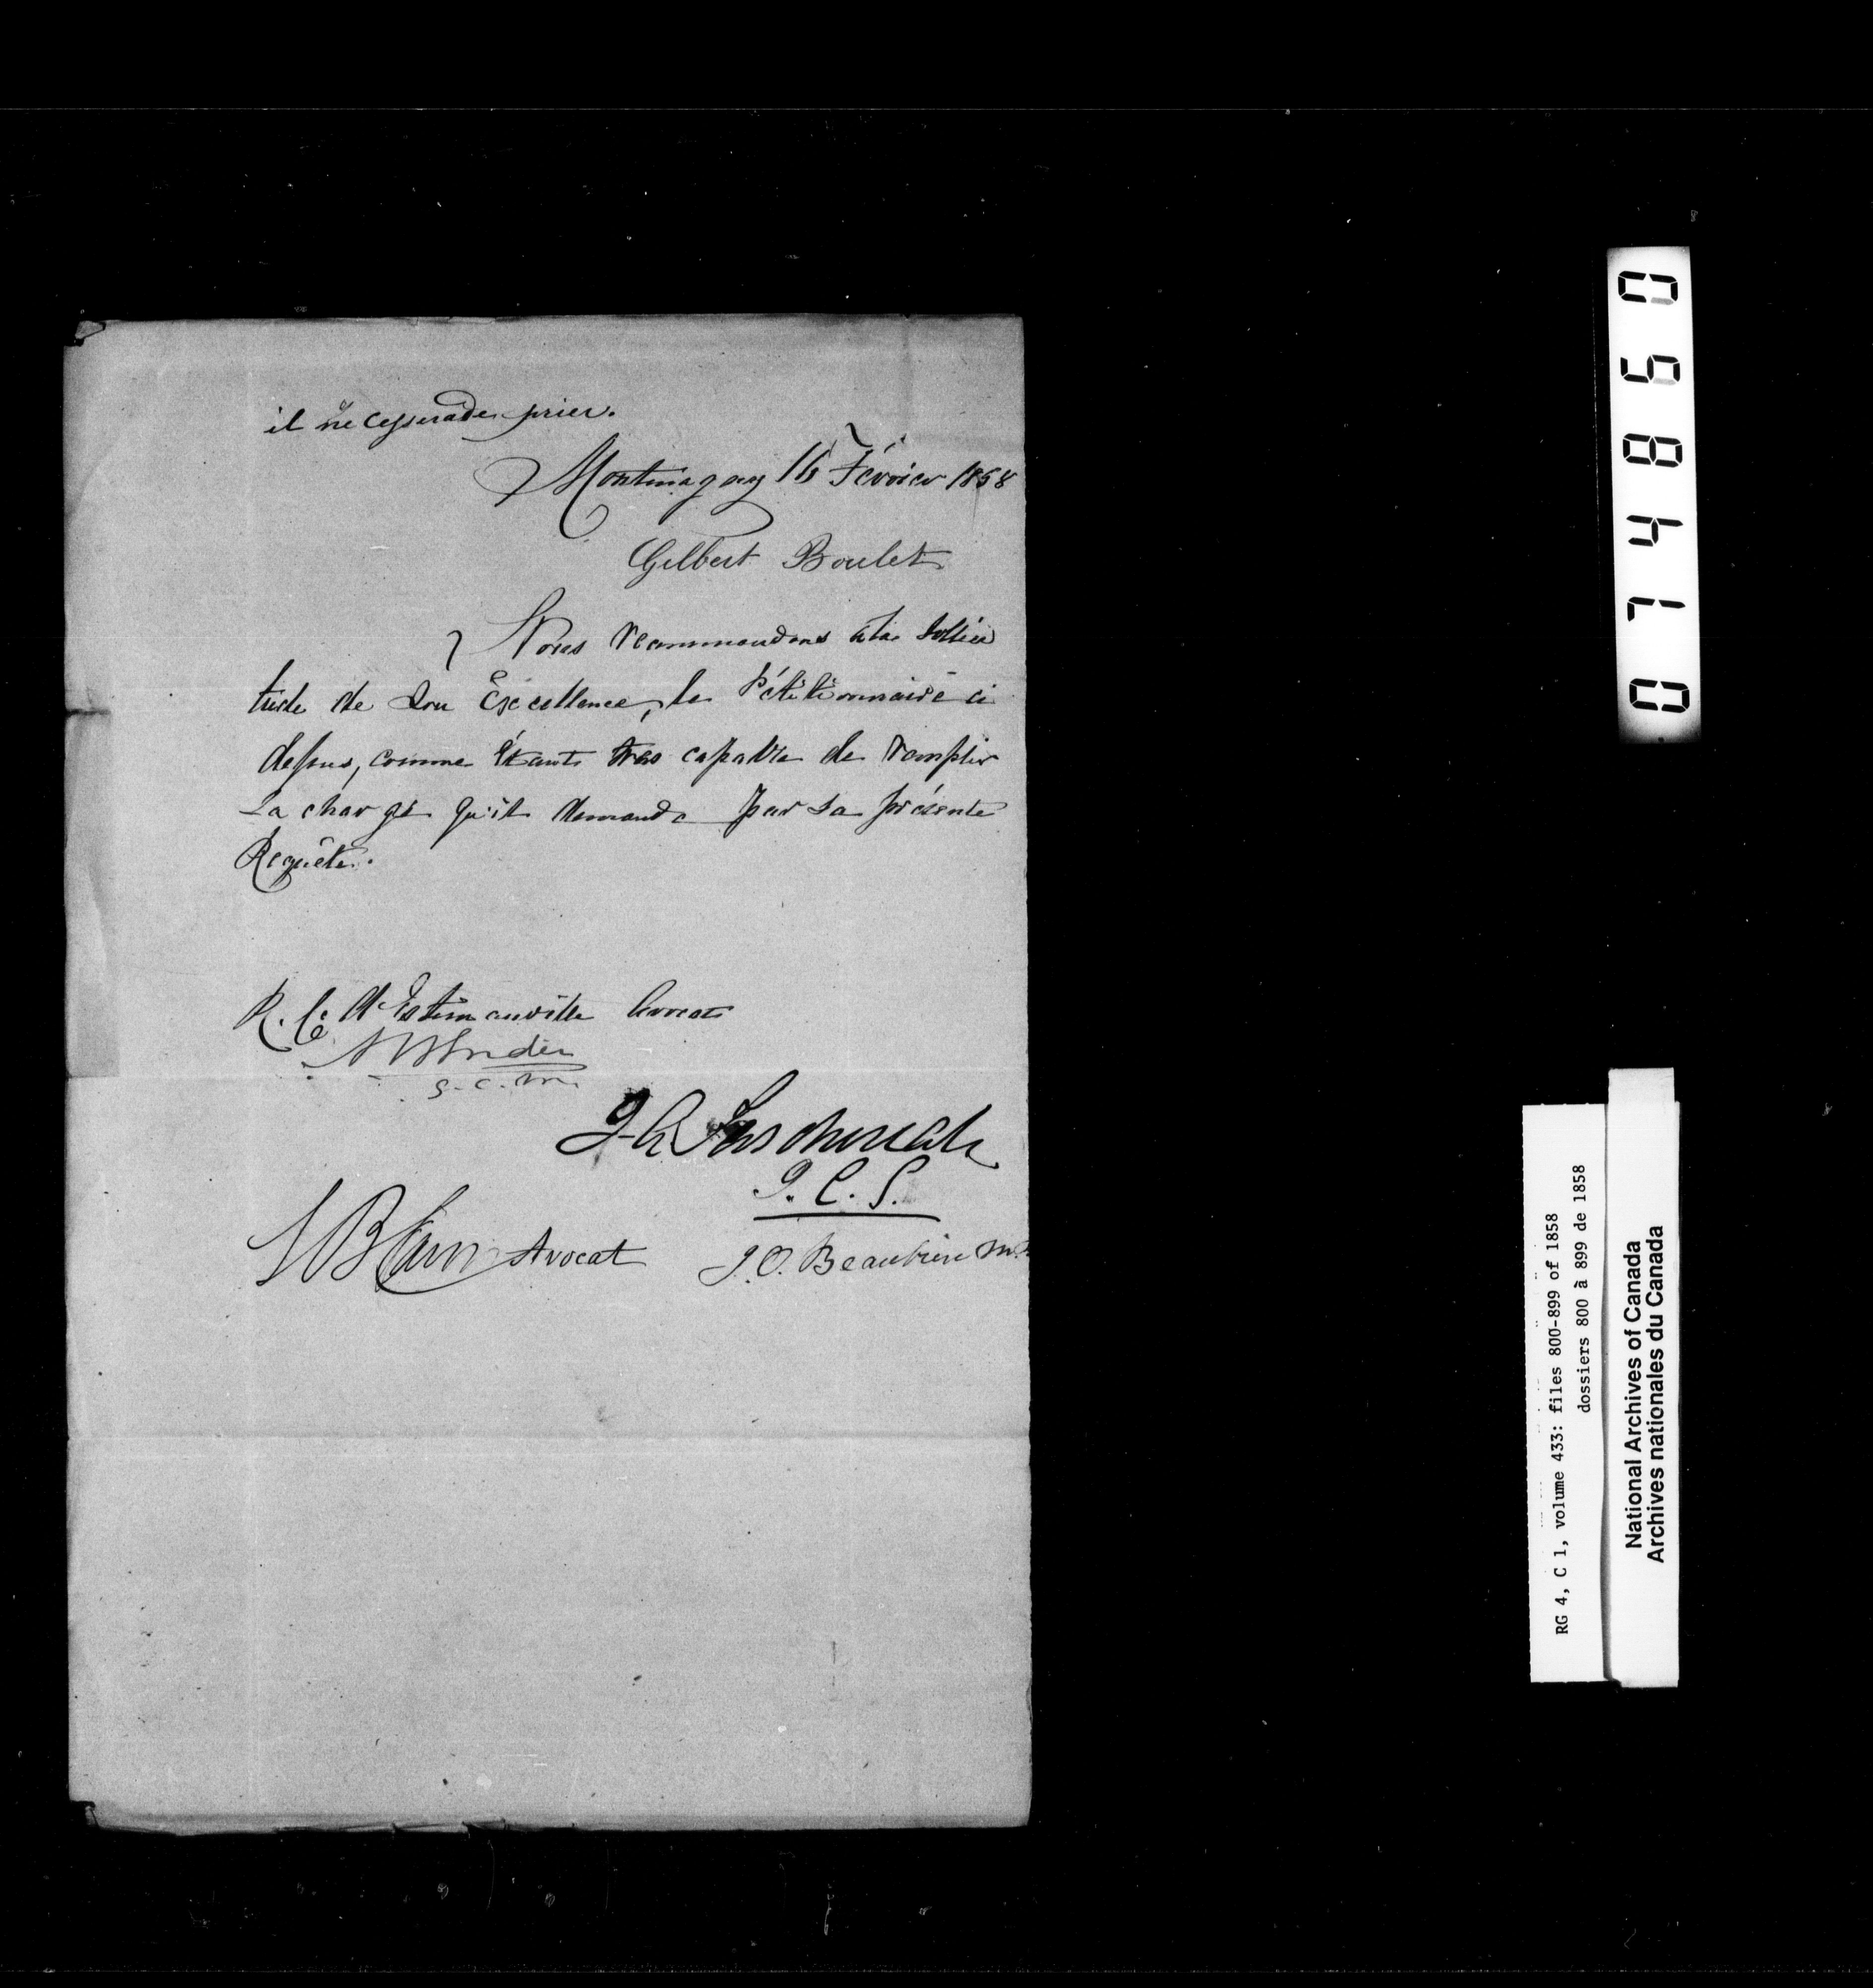 il ne cessera de prier.
Montmagny 16 Février 1858
Gilbert Boulet
Nous recommandons à la Sollici
tude de Son Excellence, le Pétitionnaire ci
dessus, comme étant très capable de remplir
La charge qu'il demande par sa présente
Requête.
R. C. D'Estimauville Avocat
S. C. M.
J. C. S.
Avocat
J. O. Beaubien M.
074850
RG 4, C 1, volume 433: files 800-899 of 1858
dossiers 800 à 899 de 1858
National Archives of Canada
Archives nationales du Canada